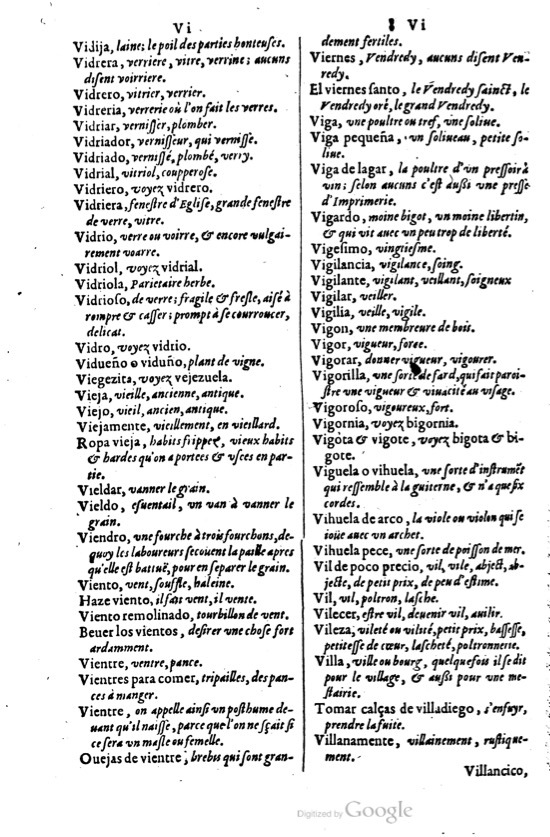 Vi
Vidija, laine; le poil des parties honteuses.
Vidrera, verriere, vitre, verrine; aucuns
disent voirriere.
Vidrero, vitrier, verrier.
Vidreria, verrerie où l'on fait les verres.
Vidriar, vernisser, plomber.
Vidriador, vernisseur, qui vernisse.
Vidriado, vernissé, plombé, verry.
Vidrial, vitriol, coupperose.
Vidriero, voyez vidrero.
Vidriera, fenestre d'Eglise, grande fenestre
de verre, vitre.
Vidrio, verre ou voirre, & encore vulgai-
rement voarre.
Vidriol, voyez vidrial.
Vidriola, Parietaire herbe.
Vidrioso, de verre; fragile & fresle, aisé à
rompre & casser; prompt à se courroucer,
delicat.
Vidro, voyez vidrio.
Vidueño o viduño, plant de vigne.
Viegezita, voyez vejezuela.
Vieja, vieille, ancienne, antique.
Viejo, vieil, ancien, antique.
Viejamente, vieillement, en vieillard.
Ropa vieja, habits frippez, vieux habits
& hardes qu'on a portees & vsees en par-
tie.
Vieldar, vanner le grain.
Vieldo, esuentail, un van à vanner le
grain.
Viendro, vne fourche à trois fourchons, de-
quoy les laboureurs secoüent la paille apres
qu'elle est batuë, pour en separer le grain.
Viento, vent, souffle, haleine.
Haze viento, il fait vent, il vente.
Viento remolinado, tourbillon de vent.
Beuer los vientos, desirer vne chose fort
ardamment.
Vientre, ventre, pance.
Vientres para comer, tripailles, des pan-
ces à manger.
Vientre, on appelle ainsi vn posthume de-
uant qu'il naisse, parce que l'on ne sçait si
ce sera vn masle ou femelle.
Ouejas de vientre, brebis qui sont gran-
Vi
dement fertiles.
Viernes, Vendredy, aucuns disent Ven-
redy.
El viernes santo, le Vendredy sainct, le
Vendredy oré, le grand Vendredy.
Viga, vne poultre ou tref, vne soliue.
Viga pequeña, vn soliueau, petite so-
liue.
Viga de lagar, la poultre d'vn pressoir à
vin; selon aucuns c'est aussi vne presse
d'Imprimerie.
Vigardo, moine bigot, vn moine libertin,
& qui vit auec vn peu trop de liberté.
Vigesimo, vingtiesme.
Vigilancia, vigilance, soing.
Vigilante, vigilant, veillant, soigneux
Vigilar, veiller.
Vigilia, veille, vigile.
Vigon, vne membreure de bois.
Vigor, vigueur, force.
Vigorar, donner vigueur, vigourer.
Vigorilla, vne sorte de fard, qui fait paroi-
stre vne vigueur & viuacité au visage.
Vigoroso, vigoureux, fort.
Vigornia, voyez bigornia.
Vigota & vigote, voyez bigota & bi-
gote.
Viguela o vihuela, vne sorte d'instrumēt
qui ressemble à la guiterne, & n'a que six
cordes.
Vihuela de arco, la viole ou violon qui se
ioüe auec vn archet.
Vihuela pece, vne sorte de poisson de mer.
Vil de poco precio, vil, vile, abject, ab-
jecte, de petit prix, de peu d'estime.
Vil, vil, poltron, lasche.
Vilecer, estre vil, deuenir vil, auilir.
Vileza, vileté ou vilité, petit prix, bassesse,
petitesse de cœur, lascheté, poltronnerie.
Villa, ville ou bourg, quelquefois il se dit
pour le village, & aussi pour vne me-
stairie.
Tomar calças de villadiego, s'enfuyr,
prendre la fuite.
Villanamente, villainement, rustique-
ment.
Villancico,
Digitized by Google